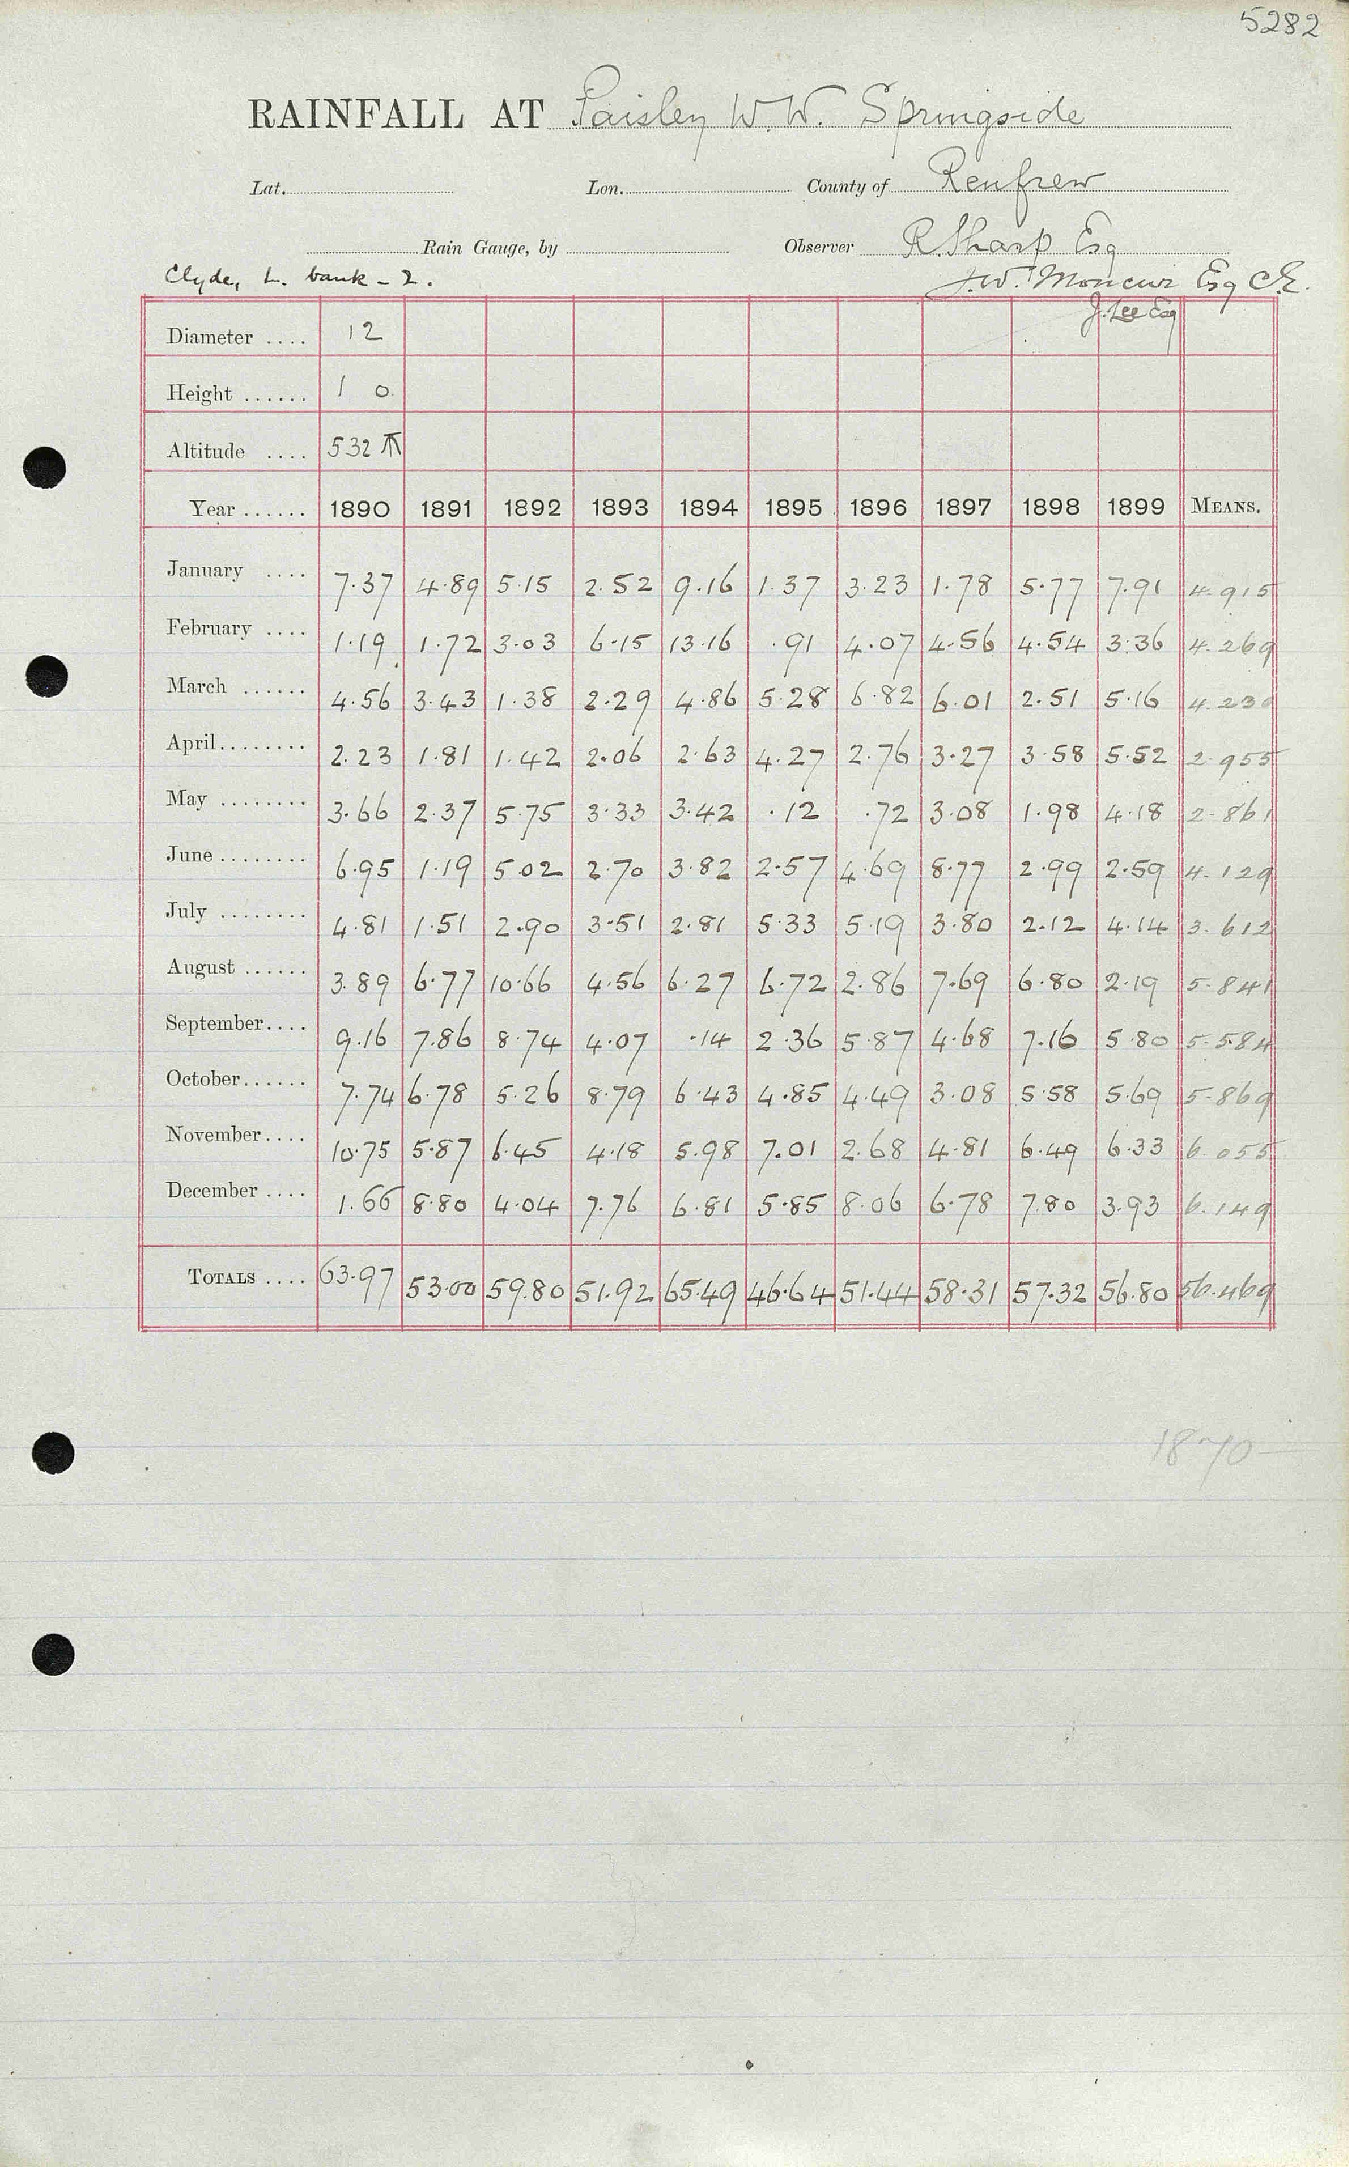 5282
RAINFALL AT Paisley W.W. Springside
Lat. Lon. County of Renfrew
Rain Gauge, by Observer R. Sharp Esq
Clyde, L. bank - 2. J.W. Moncur Esq C.E.
J. Lee Esq
Diameter .... 12
Height ...... 1 0
Altitude .... 532
Year ...... 1890 1891 1892 1893 1894 1895 1896 1897 1898 1899 MEANS.
January .... 7.37 4.89 5.15 2.52 9.16 1.37 3.23 1.78 5.77 7.91 4.915
February .... 1.19 1.72 3.03 6.15 13.16 .91 4.07 4.56 4.54 3.36 4.269
March ...... 4.56 3.43 1.38 2.29 4.86 5.28 6.82 6.01 2.51 5.16 4.230
April ........ 2.23 1.81 1.42 2.06 2.63 4.27 2.76 3.27 3.58 5.52 2.955
May ........ 3.66 2.37 5.75 3.33 3.42 .12 .72 3.08 1.98 4.18 2.861
June ........ 6.95 1.19 5.02 2.70 3.82 2.57 4.69 8.77 2.99 2.59 4.129
July ........ 4.81 1.51 2.90 3.51 2.81 5.33 5.19 3.80 2.12 4.14 3.612
August ...... 3.89 6.77 10.66 4.56 6.27 6.72 2.86 7.69 6.80 2.19 5.841
September .... 9.16 7.86 8.74 4.07 .14 2.36 5.87 4.68 7.16 5.80 5.584
October ...... 7.74 6.78 5.26 8.79 6.43 4.85 4.49 3.08 5.58 5.69 5.869
November .... 10.75 5.87 6.45 4.18 5.98 7.01 2.68 4.81 6.49 6.33 6.055
December .... 1.66 8.80 4.04 7.76 6.81 5.85 8.06 6.78 7.80 3.93 6.149
TOTALS .... 63.97 53.00 59.80 51.92 65.49 46.64 51.44 58.31 57.32 56.80 56.469
1870-